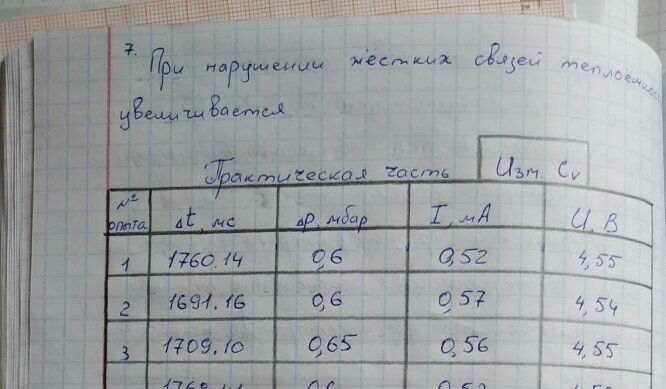 7.
При нарушении жёстких связей теплоёмкость
увеличивается.
Практическая часть Изм. Cv
№ опыта Δt, мс Δp, мбар I, мА U, В
1 1760.14 0,6 0,52 4,55
2 1691.16 0,6 0,57 4,54
3 1709.10 0,65 0,56 4,55